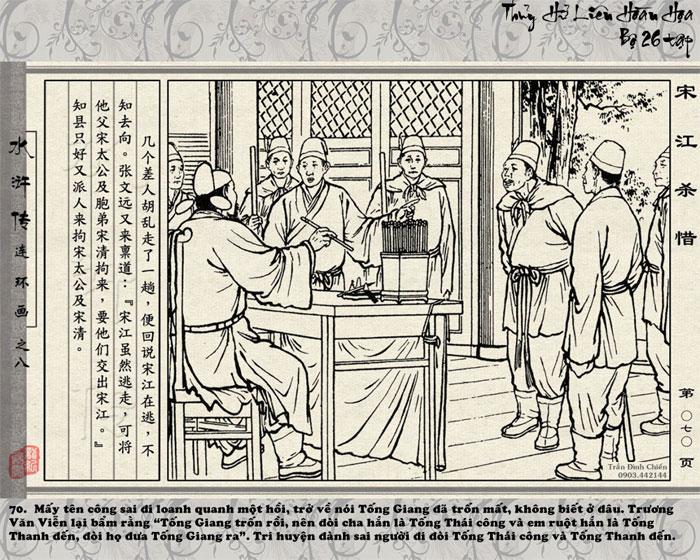 Thủy Hử Liên Hoàn Họa
Bộ 26 tập
宋江杀惜
第〇七〇页
水浒传连环画之八
几个差人胡乱走了一趟，便回说宋江在逃，不
知去向。张文远又来禀道：『宋江虽然逃走，可将
他父宋太公及胞弟宋清拘来，要他们交出宋江。』
知县只好又派人来拘宋太公及宋清。
Trần Đình Chiến
0903.442144
70. Mấy tên công sai đi loanh quanh một hồi, trở về nói Tống Giang đã trốn mất, không biết ở đâu. Trương
Văn Viễn lại bẩm rằng “Tống Giang trốn rồi, nên đòi cha hắn là Tống Thái công và em ruột hắn là Tống
Thanh đến, đòi họ đưa Tống Giang ra”. Tri huyện đành sai người đi đòi Tống Thái công và Tống Thanh đến.